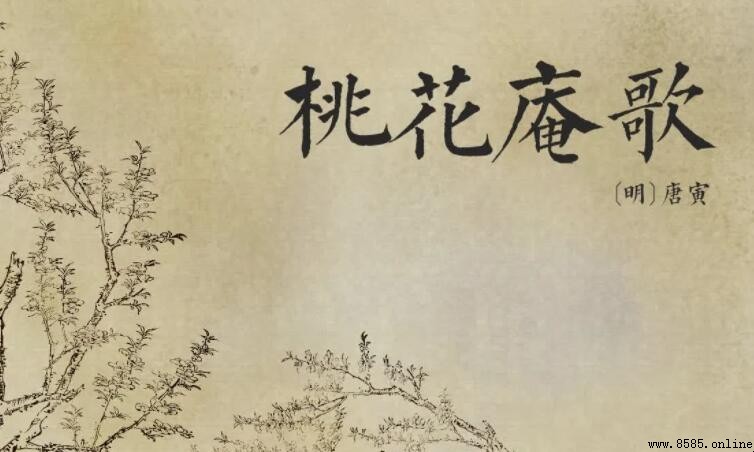 桃花庵歌
〔明〕唐寅
www.8585.online